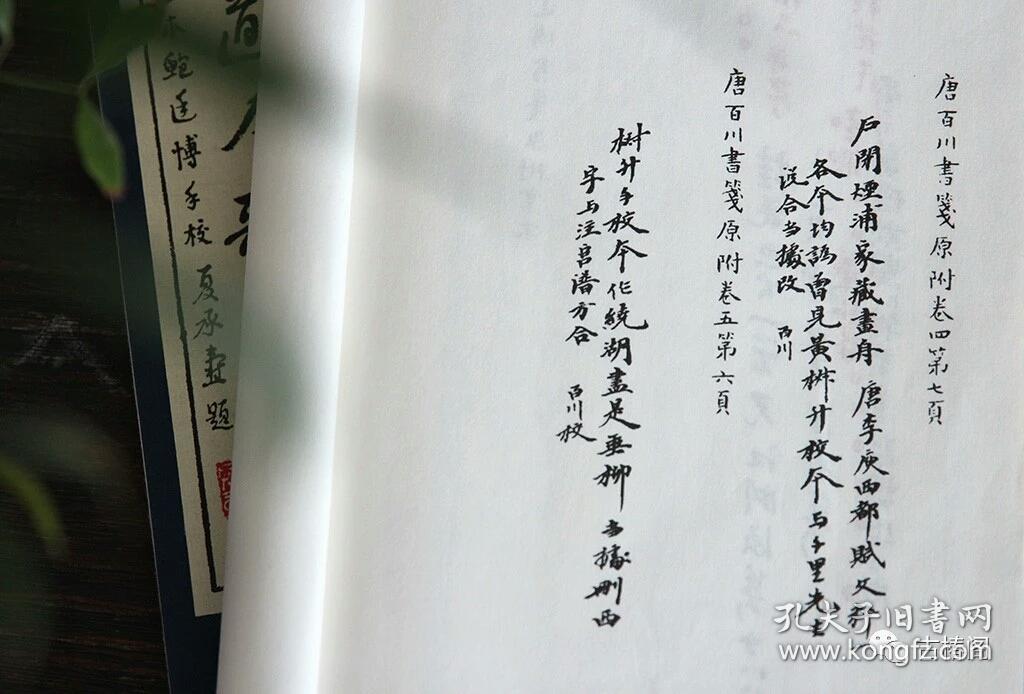 唐百川書箋原附卷四第七頁
戶閉煙浦家藏畫舟 唐李庾西都賦文
各本均譌曾見黃樹升校本与千里先生
說合当據改 百川
唐百川書箋原附卷五第六頁
樹升手校本作繞湖盡是垂柳 当據刪西
字与注吕譜方合 百川校
道
鮑廷博手校
夏承燾題
孔夫子旧书网
www.kongfz.com
古椿阁